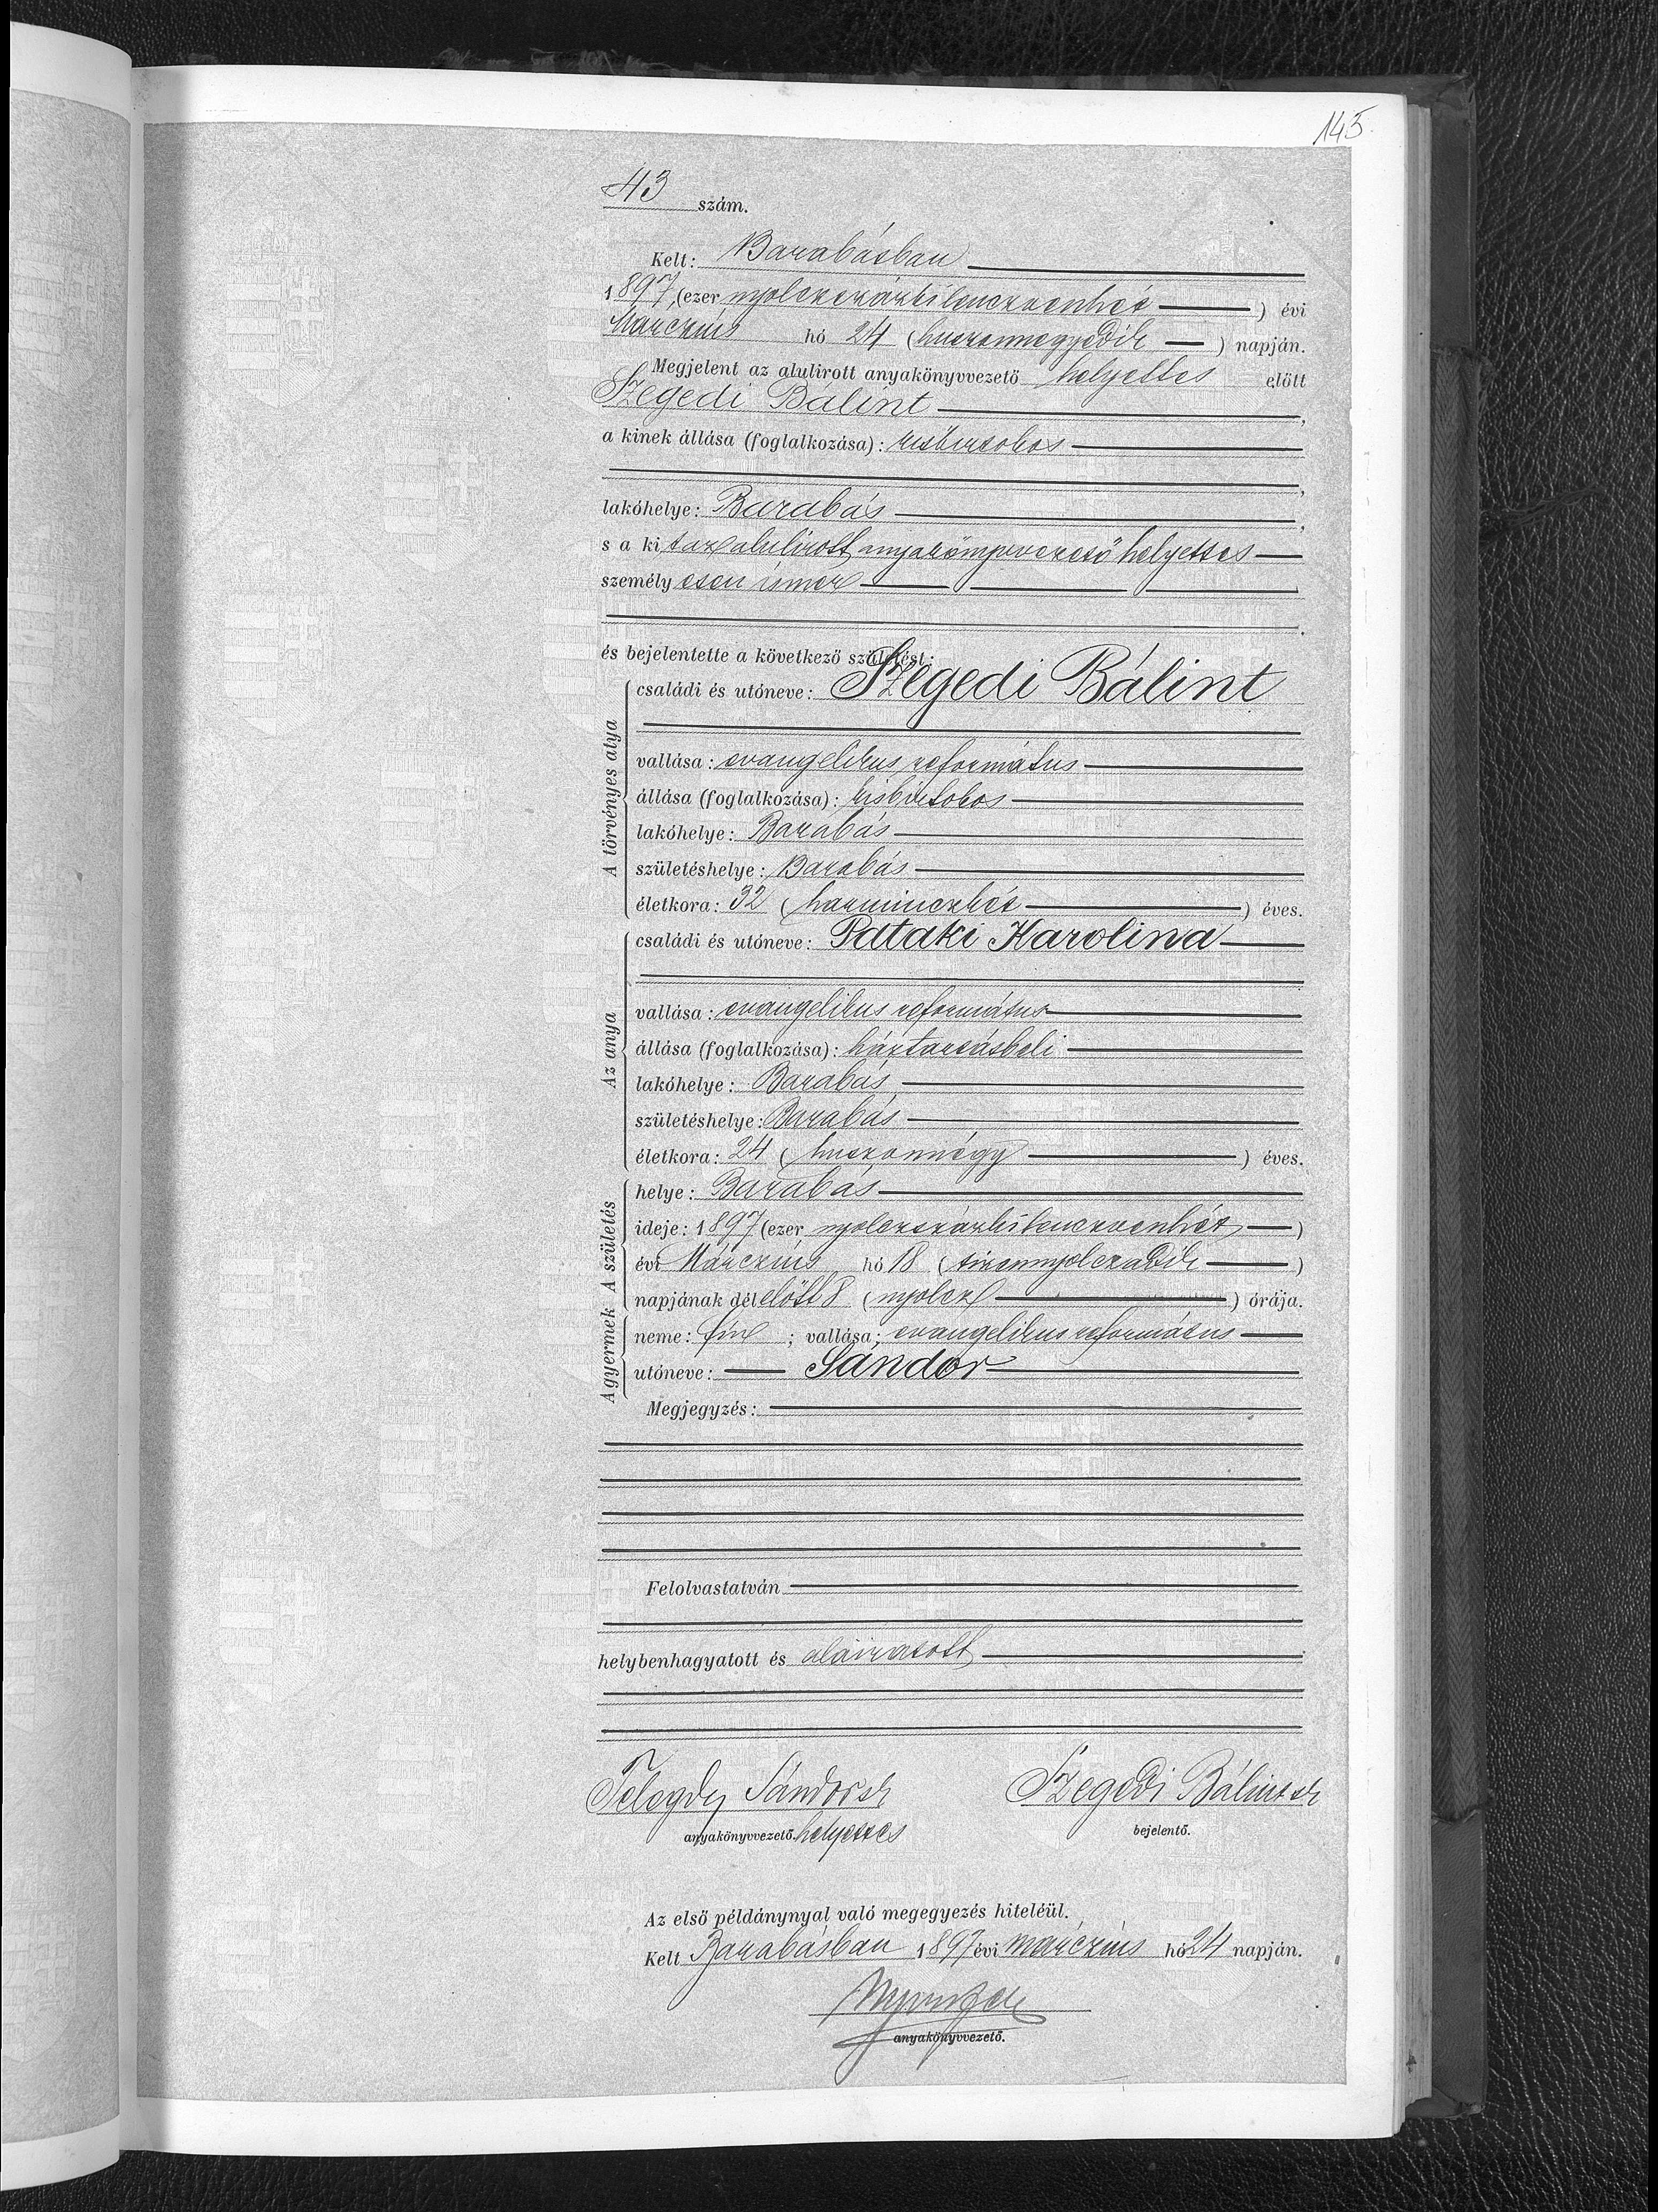 145.
43 szám.
Kelt: Barabásban
1897, (ezer nyolczszázkilenczvenhét) évi
Márczius hó 24 (huszonnegyedik) napján.
Megjelent az alulirott anyakönyvvezető helyettes előtt
Szegedi Bálint,
a kinek állása (foglalkozása): kisbirtokos
,
lakóhelye: Barabás,
s a kit az alulirott anyakönyvvezető helyettes
személyesen ismer
.
és bejelentette a következő születést:
A törvényes atya
családi és utóneve: Szegedi Bálint
vallása: evangelikus református
állása (foglalkozása): kisbirtokos
lakóhelye: Barabás
születéshelye: Barabás
életkora: 32 (harminczkét) éves.
Az anya
családi és utóneve: Pataki Karolina
vallása: evangelikus református
állása (foglalkozása): háztartásbeli
lakóhelye: Barabás
születéshelye: Barabás
életkora: 24 (huszonnégy) éves.
A születés
helye: Barabás
ideje: 1897 (ezer nyolczszázkilenczvenhét)
évi Márczius hó 18 (tizennyolczadik)
napjának délelőtt 8 (nyolcz) órája.
A gyermek
neme: fiu; vallása: evangelikus református
utóneve: Sándor
Megjegyzés:
Felolvastatván
helybenhagyatott és aláiratott
Telegdy Sándor sk Szegedi Bálint sk
anyakönyvvezető. helyettes bejelentő.
Az első példánynyal való megegyezés hiteléül.
Kelt Barabásban 1897 évi márczius hó 24 napján.
anyakönyvvezető.